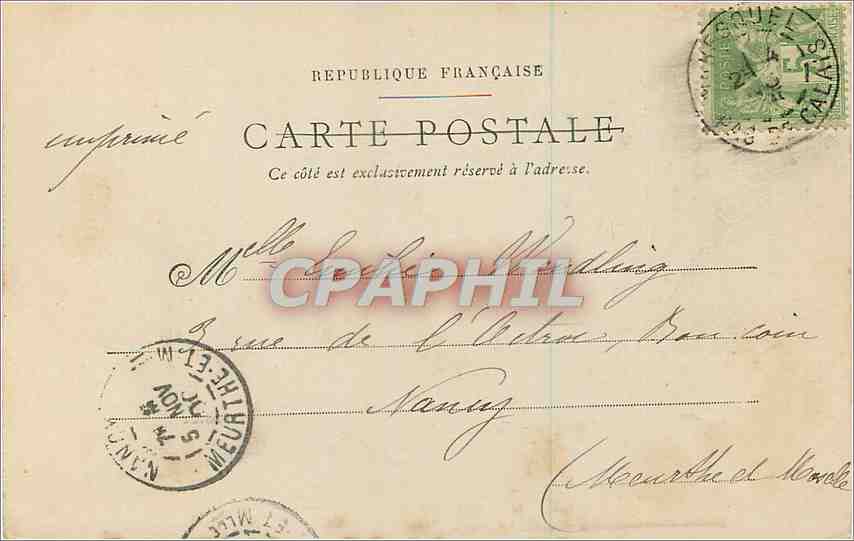 REPUBLIQUE FRANÇAISE
imprimé
CARTE POSTALE
Ce côté est exclusivement réservé à l'adresse.
Melle Emilie Wendling
CPAPHIL
3 rue de l'Octroi, Bon coin
Nancy
(Meurthe et Moselle
POSTE
5
PAS DE CALAIS
21
NANCY
MEURTHE-ET-M
5 NOV
ET MLLE